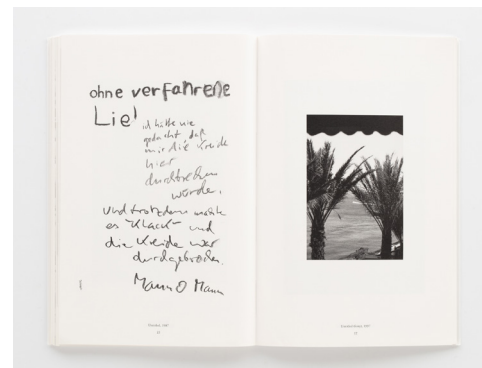 ohne verfahrene
Lie!
ich hätte nie
gedacht, daß
mir die Kreide
hier
durchbrechen
würde.
Und trotzdem machte
es "Klack" und
die Kreide war
durchgebrochen.
Mann O Mann